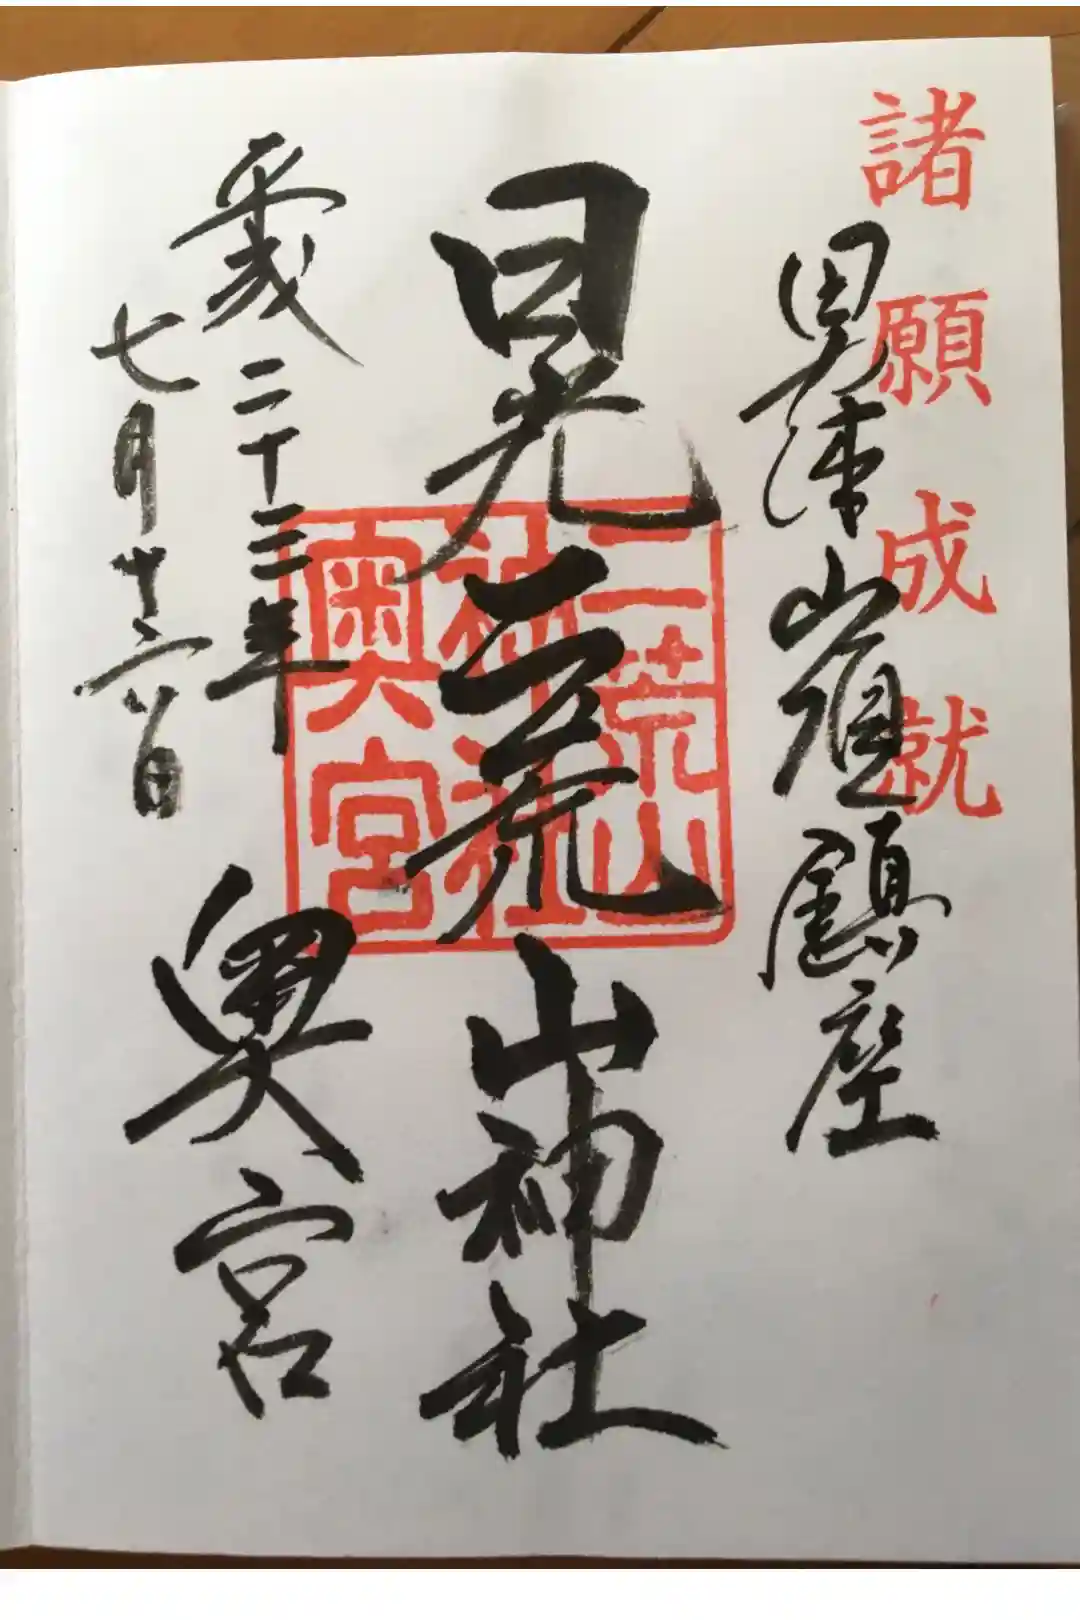 諸願成就
男体山頂鎮座
日光二荒山神社
二荒山
神社
奥宮
奥宮
平成二十三年
七月廿六日